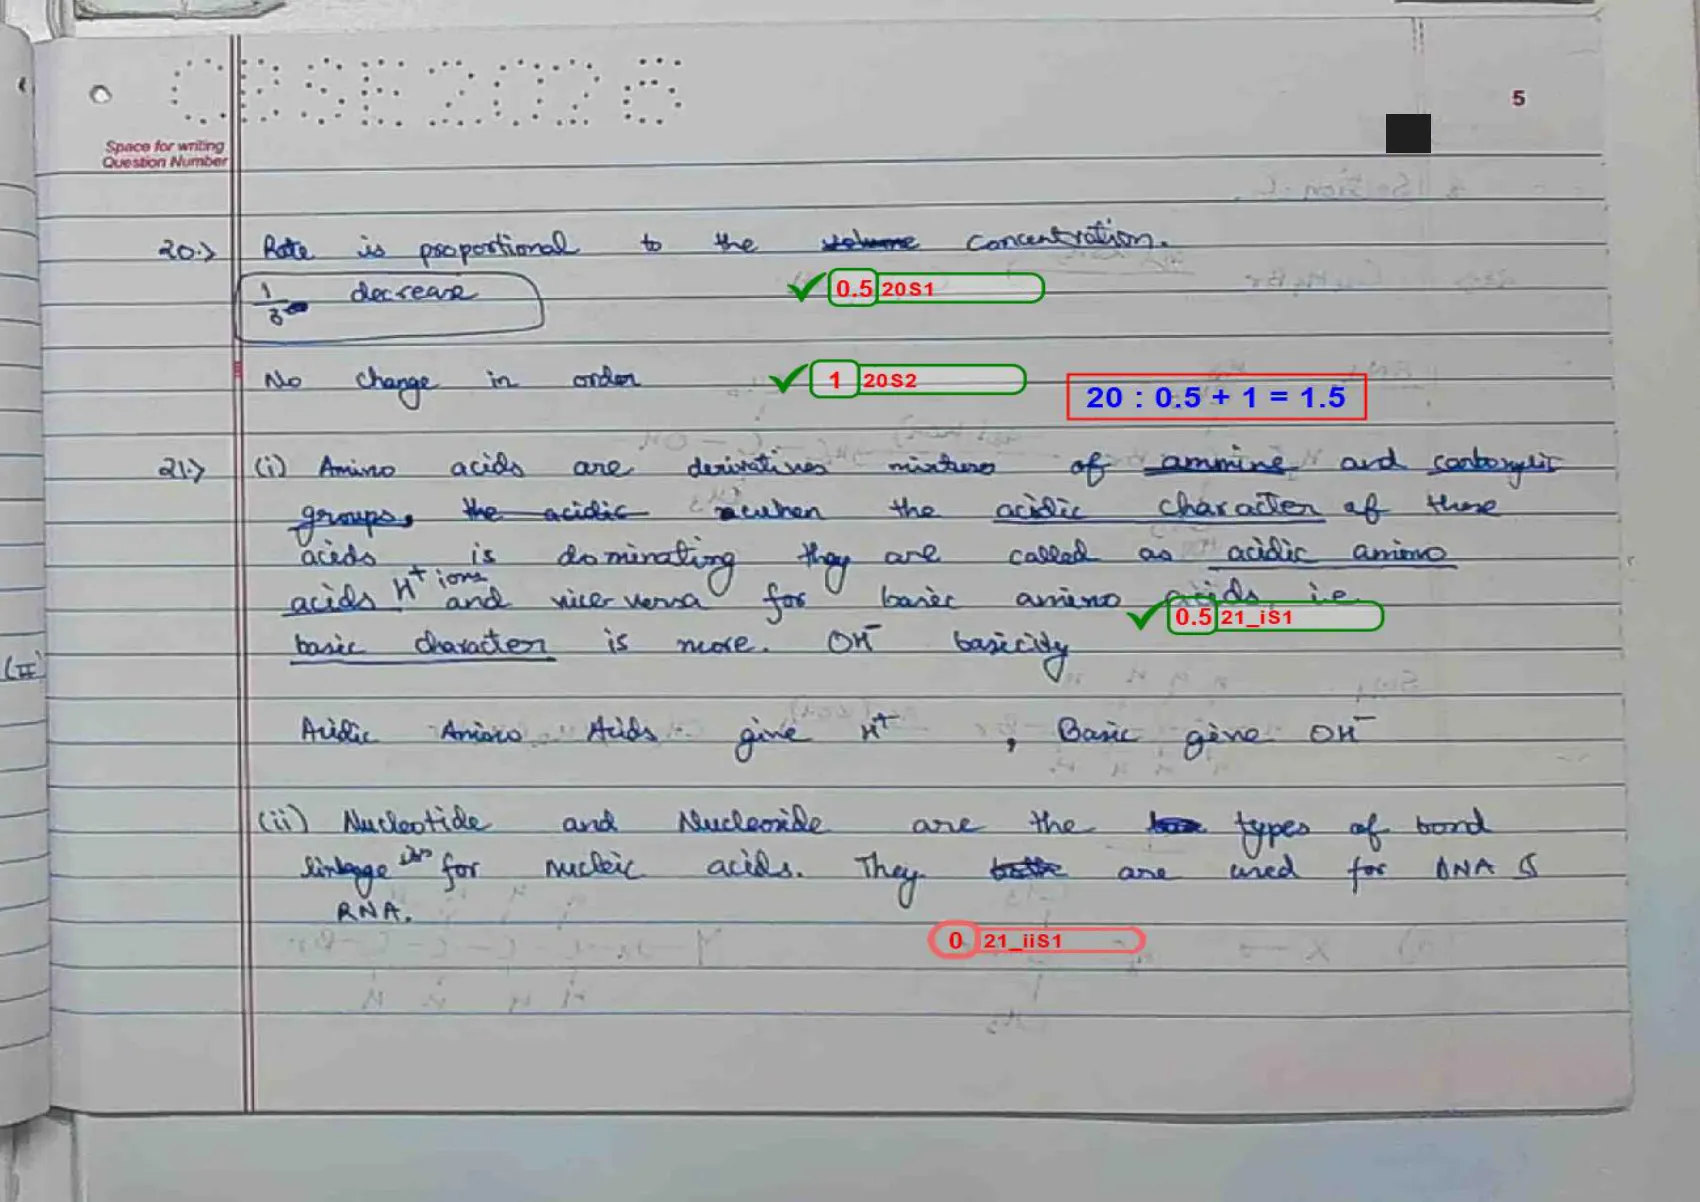 CBSE2026
5
Space for writing
Question Number
20.) Rate is proportional to the volume concentration.
1/3 decrease
✓ 0.5 20S1
No change in order
✓ 1 20S2
20 : 0.5 + 1 = 1.5
21.) (i) Amino acids are derivatives mixtures of ammine and carboxylic
groups, the acidic when the acidic character of these
acids is dominating they are called as acidic amino
acids H⁺ ions and vice versa for basic amino acids i.e.
✓ 0.5 21_iS1
basic character is more. OH⁻ basicity
Acidic Amino Acids give H⁺, Basic give OH⁻
(ii) Nucleotide and Nucleoside are the types of bond
linkage for nucleic acids. They are used for DNA &
RNA.
0 21_iiS1
(II)